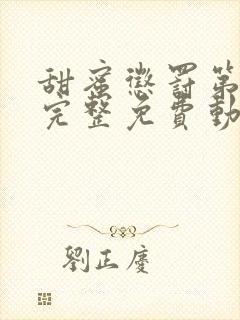 甜蜜懲罰第
完整免費動
劉正慶